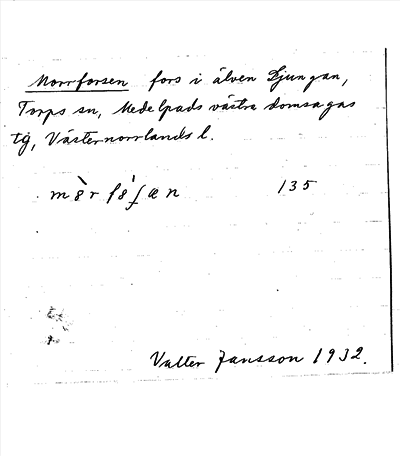 Norrforsen fors i älven Ljungan,
Torps sn, Medelpads västra domsagas
tg, Västernorrlands l.
135
Valter Jansson 1932.